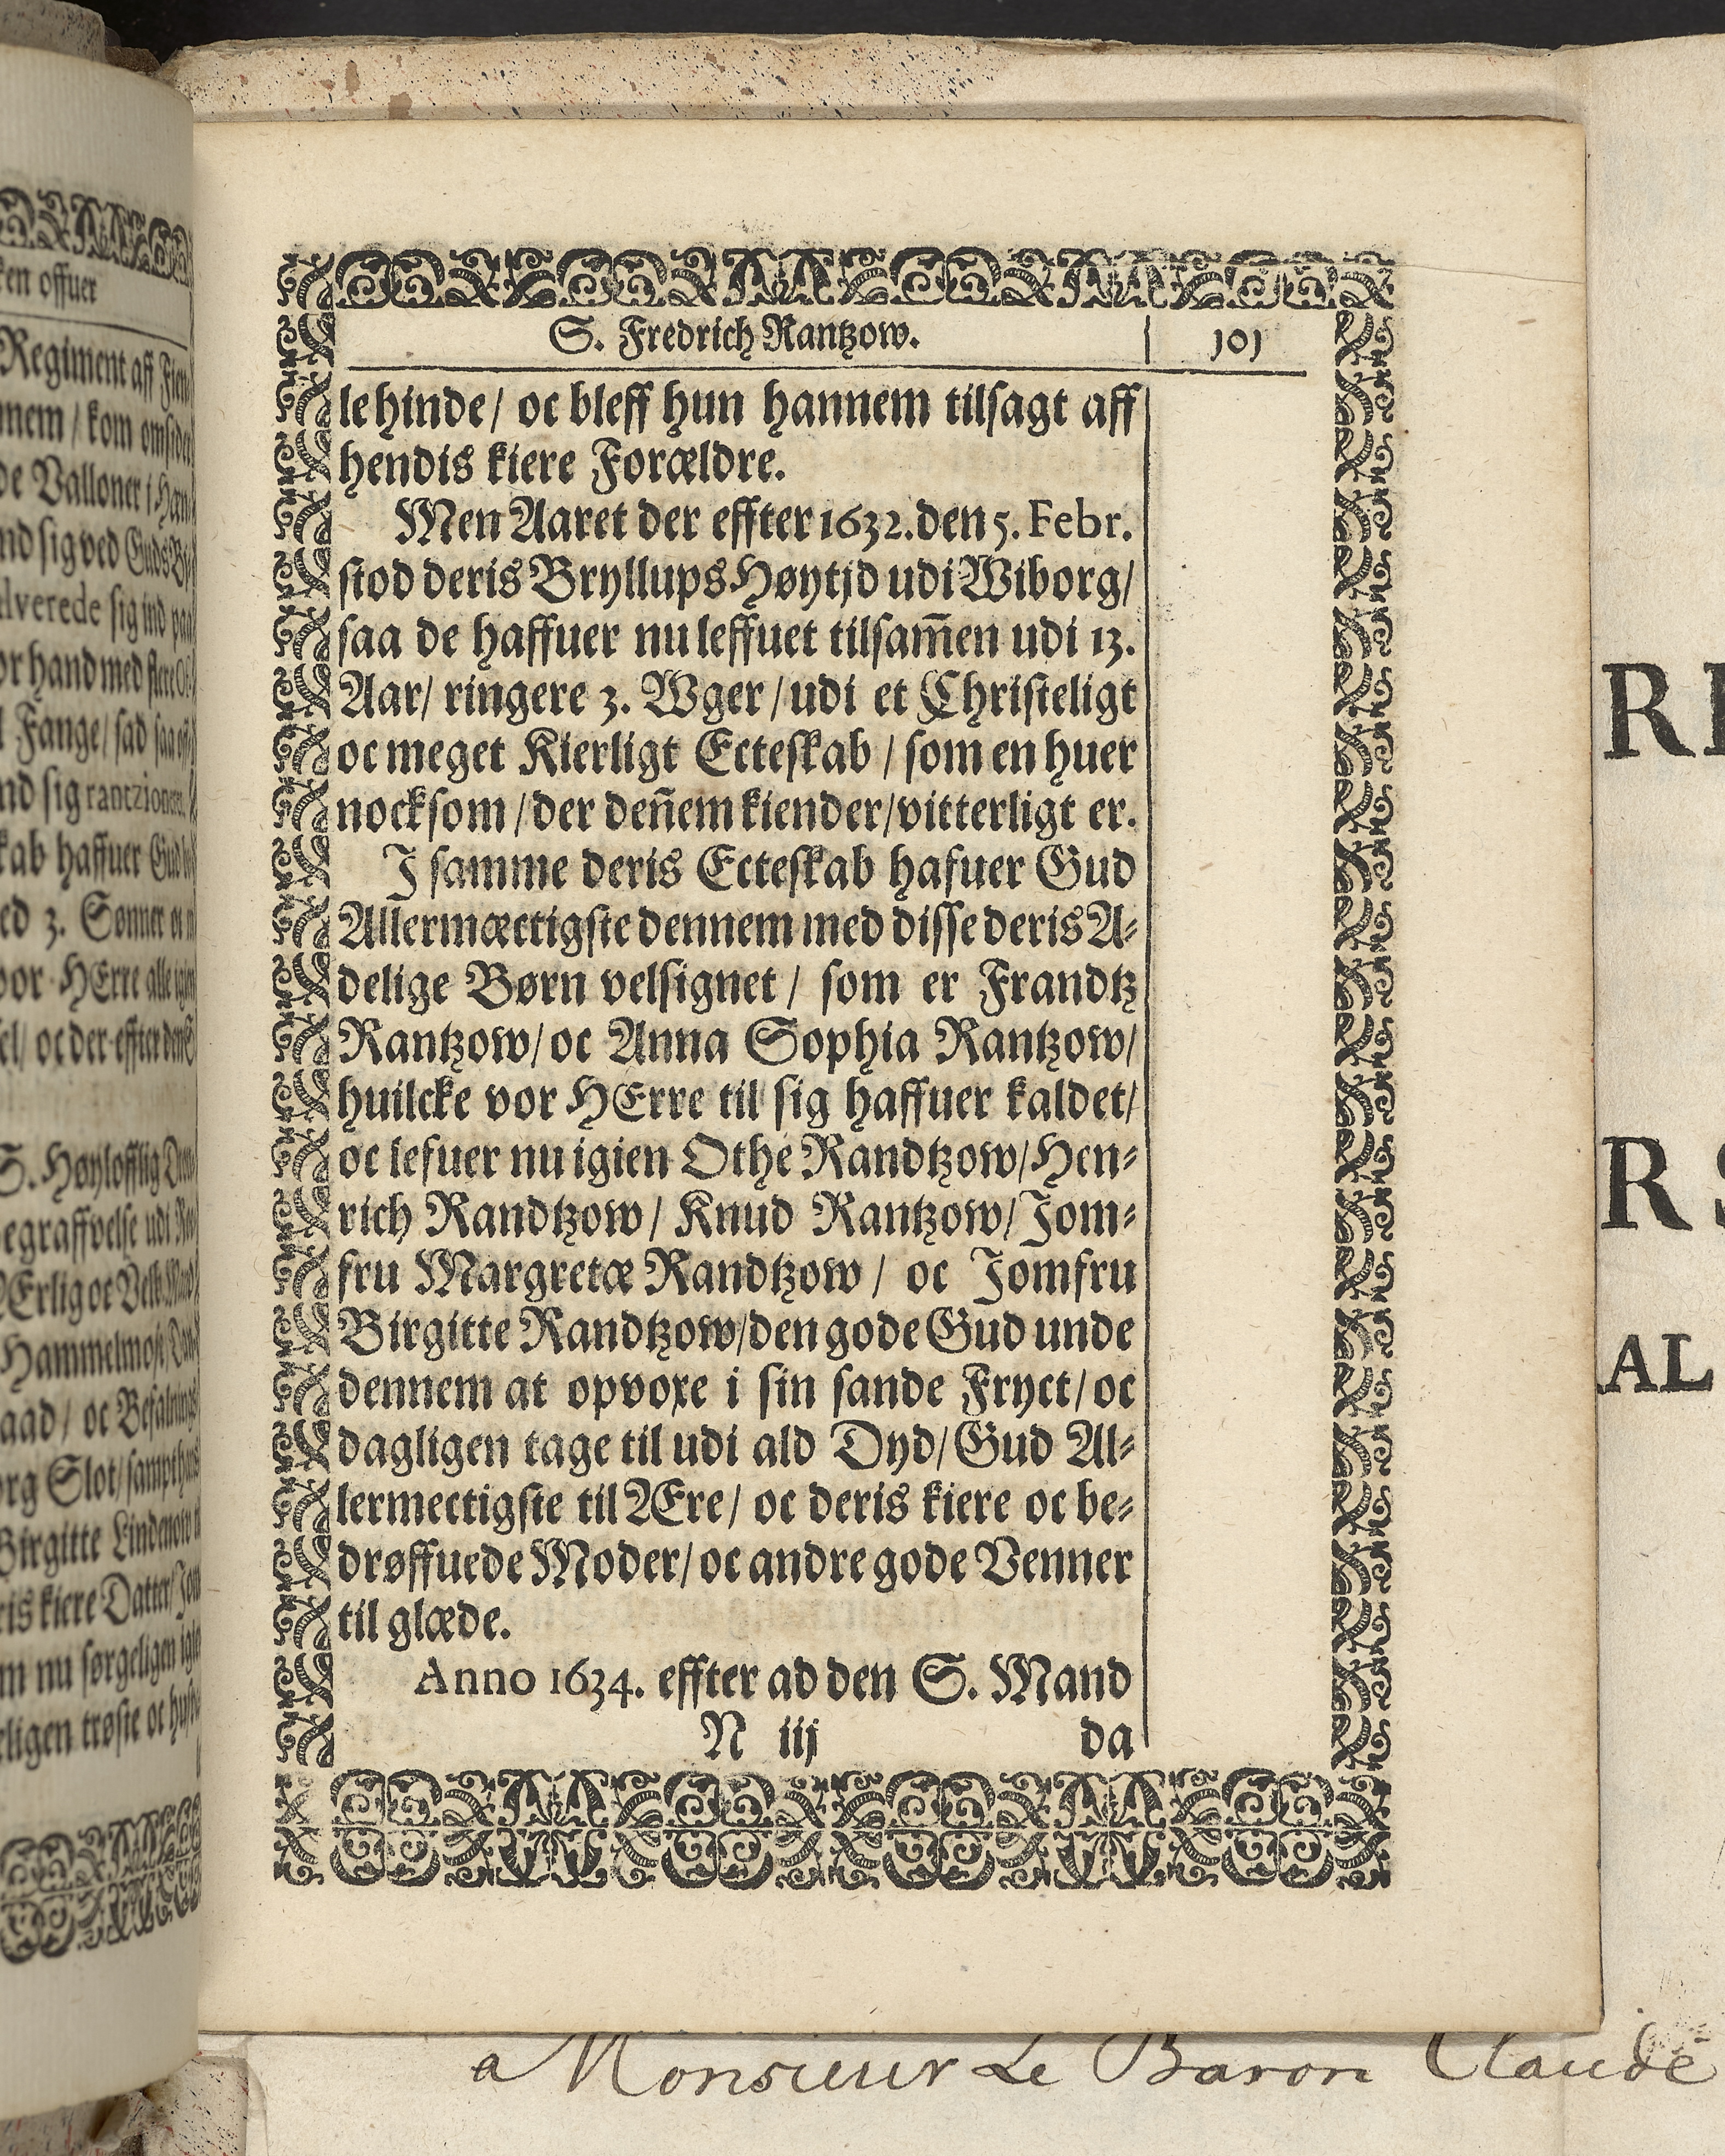 S. Fredrich Rantzow. 101
le hinde/ oc bleff hun hannem tilsagt aff
hendis kiere Forældre.
Men Aaret der effter 1632. den 5. Febr.
stod deris Bryllups Høytjd udi Wiborg/
saa de haffuer nu leffuet tilsam̅en udi 13.
Aar/ ringere 3. Wger/ udi et Christeligt
oc meget Kierligt Ecteskab/ som en huer
nocksom/ der den̅em kiender/ vitterligt er.
I samme deris Ecteskab hafuer Gud
Allermæctigste dennem med disse deris A-
delige Børn velsignet/ som er Frandtz
Rantzow/ oc Anna Sophia Rantzow/
huilcke vor HErre til sig haffuer kaldet/
oc lefuer nu igien Othe Randtzow/ Hen-
rich Randtzow/ Knud Rantzow/ Jom-
fru Margretæ Randtzow/ oc Jomfru
Birgitte Randtzow/ den gode Gud unde
dennem at opvoxe i sin sande Fryct/ oc
dagligen tage til udi ald Dyd/ Gud Al-
lermectigste til Ære/ oc deris kiere oc be-
drøffuede Moder/ oc andre gode Venner
til glæde.
Anno 1634. effter ad den S. Mand
N iij da
a Monsieur Le Baron Claude
ken offuer
Regiment aff
/ kom
de Valloner i
sig ved Guds
lverede sig ind paa
or hand med flere
Fange/ sad saa
nd sig rantzionere
haffuer Gud
ed 3. Sønner oc
vor HErre alle igien
oc der effter den
S. Høylofflig
egraffvelse udi
Erlig oc Velb. Mand
Hammelmose
oc Befalnings
Slot/
Birgitte Lindenow
kiere Datter/ Jom
nu sørgeligen
trøste oc
R
R S
AL